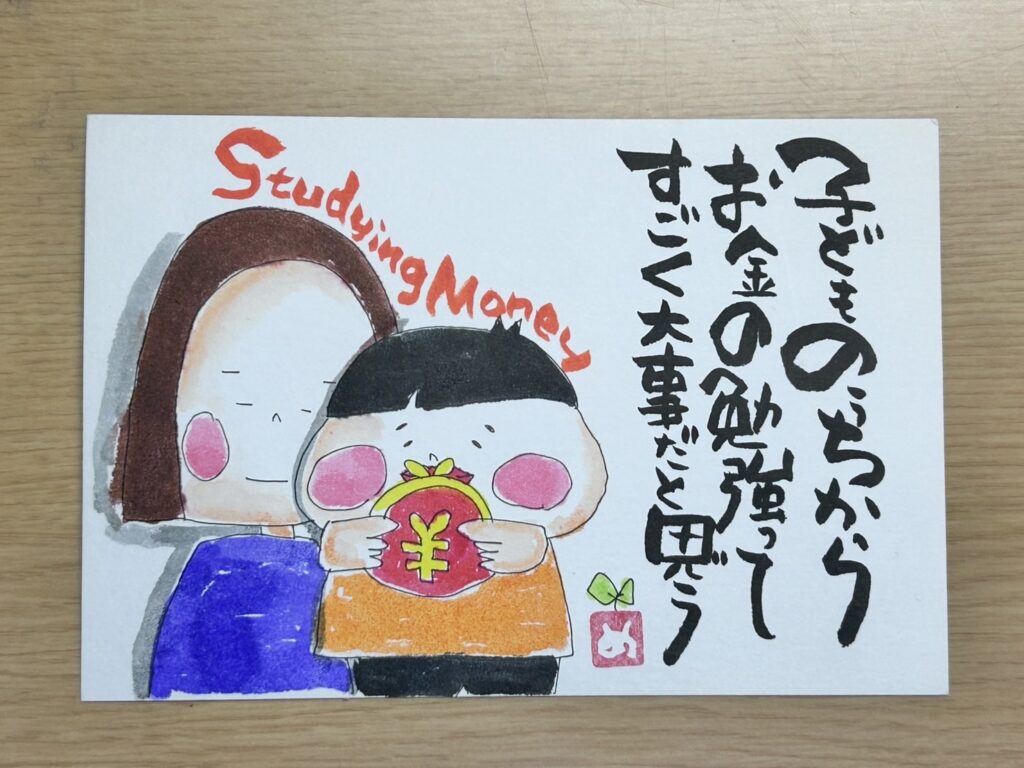 Studying Money
子どものうちから
お金の勉強って
すごく大事だと思う
¥
め